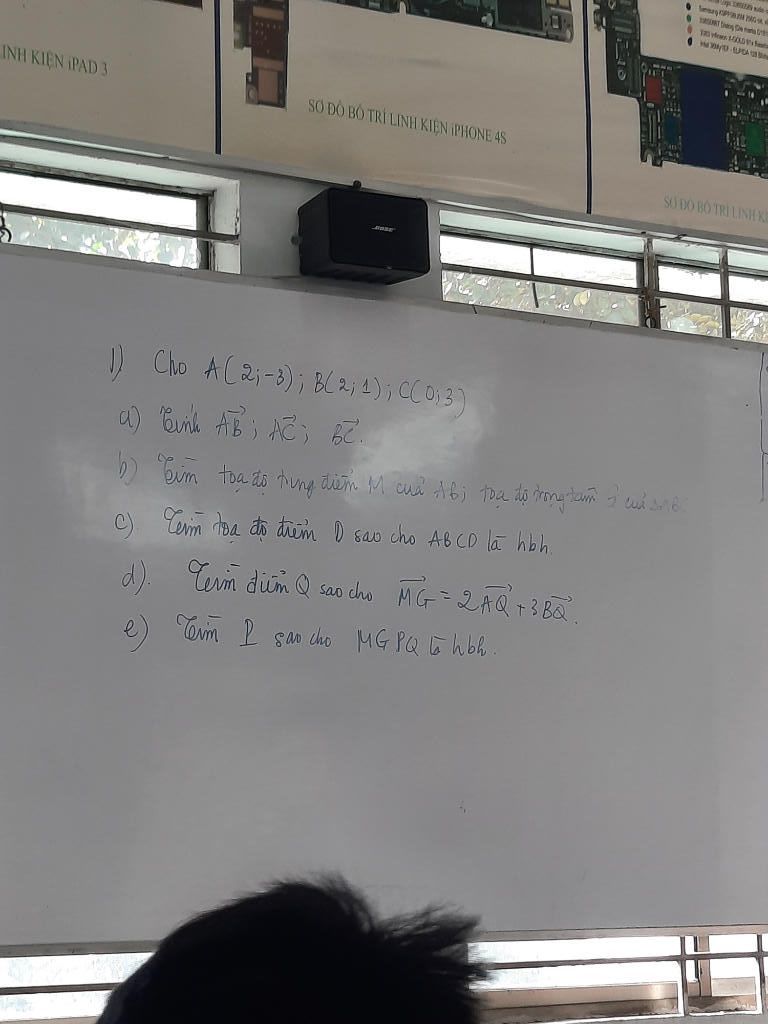 LINH KIỆN iPAD 3
SƠ ĐỒ BỐ TRÍ LINH KIỆN iPHONE 4S
SƠ ĐỒ BỐ TRÍ LINH
BOSE
1) Cho A(2;-3); B(2;1); C(0;3)
a) Tính \overrightarrow{AB}; \overrightarrow{AC}; \overrightarrow{BC}.
b) Tìm toạ độ trung điểm M của AB; toạ độ trọng tâm G của ΔABC
c) Tìm tọa độ điểm D sao cho ABCD là hbh.
d). Tìm điểm Q sao cho \overrightarrow{MG} = 2\overrightarrow{AQ} + 3\overrightarrow{BQ}.
e) Tìm P sao cho MGPQ là hbh.